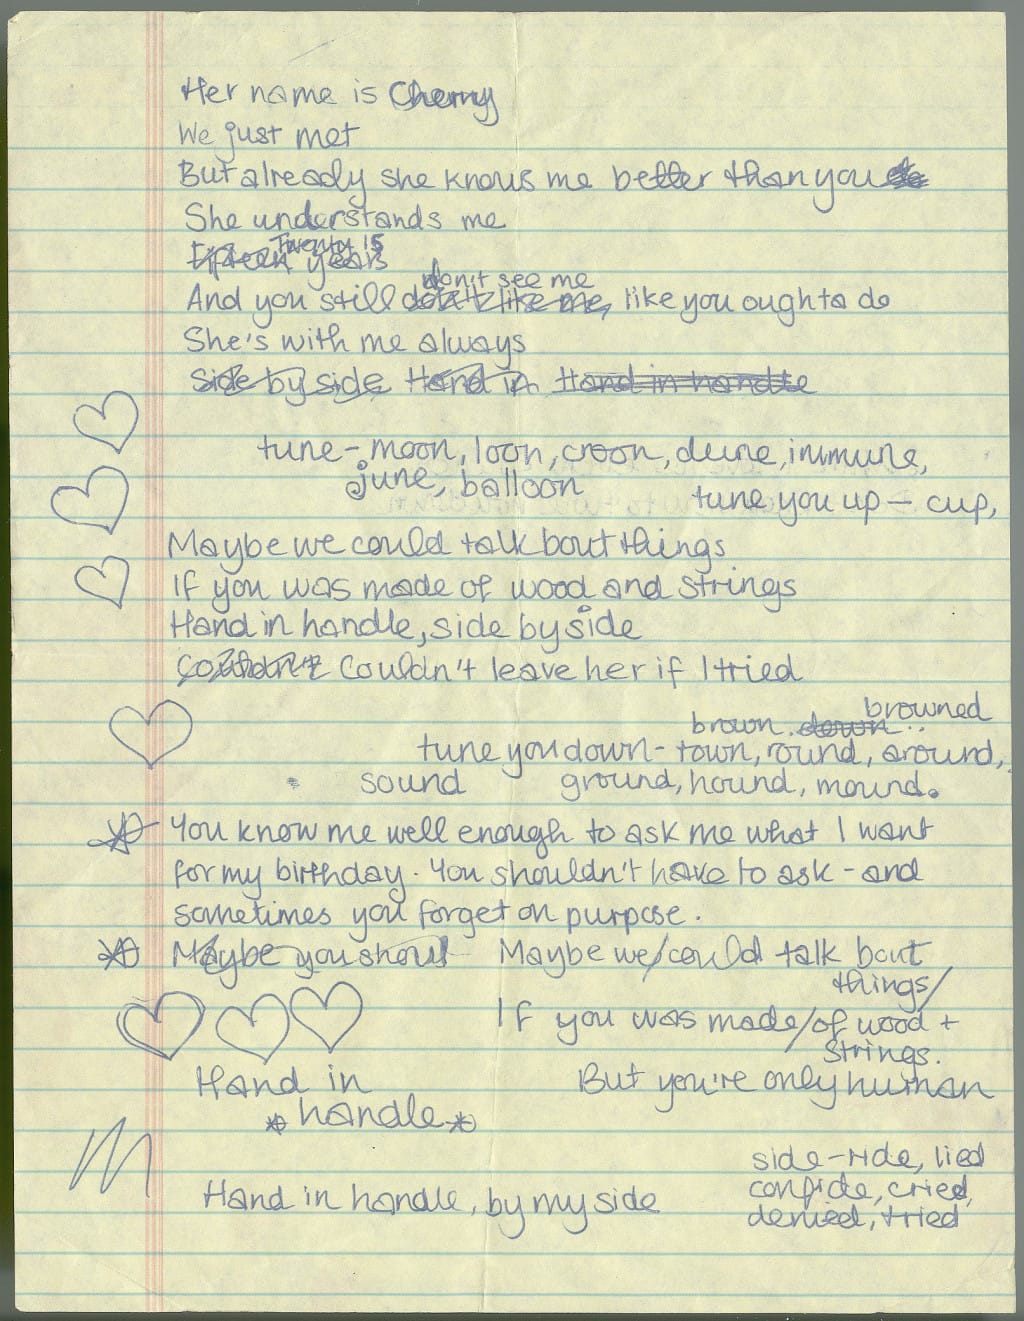 Her name is Cherry
We just met
But already she knows me better than you
She understands me
Twenty is
Fifteen years
don't see me
And you still don't like me, like you ought to do
She's with me always
Side by side Hand in Hand in handle
tune - moon, loon, croon, dune, immune,
june, balloon
tune you up - cup,
Maybe we could talk bout things
If you was made of wood and strings
Hand in handle, side by side
Couldn't Couldn't leave her if I tried
browned
brown. down..
tune you down - town, round, around,
sound ground, hound, mound.
You know me well enough to ask me what I want
for my birthday. You shouldn't have to ask - and
sometimes you forget on purpose.
Maybe you shoul Maybe we/could talk bout
things/
If you was made/of wood +
Strings.
Hand in But you're only human
handle
side - ride, lied
Hand in handle, by my side confide, cried,
denied, tried